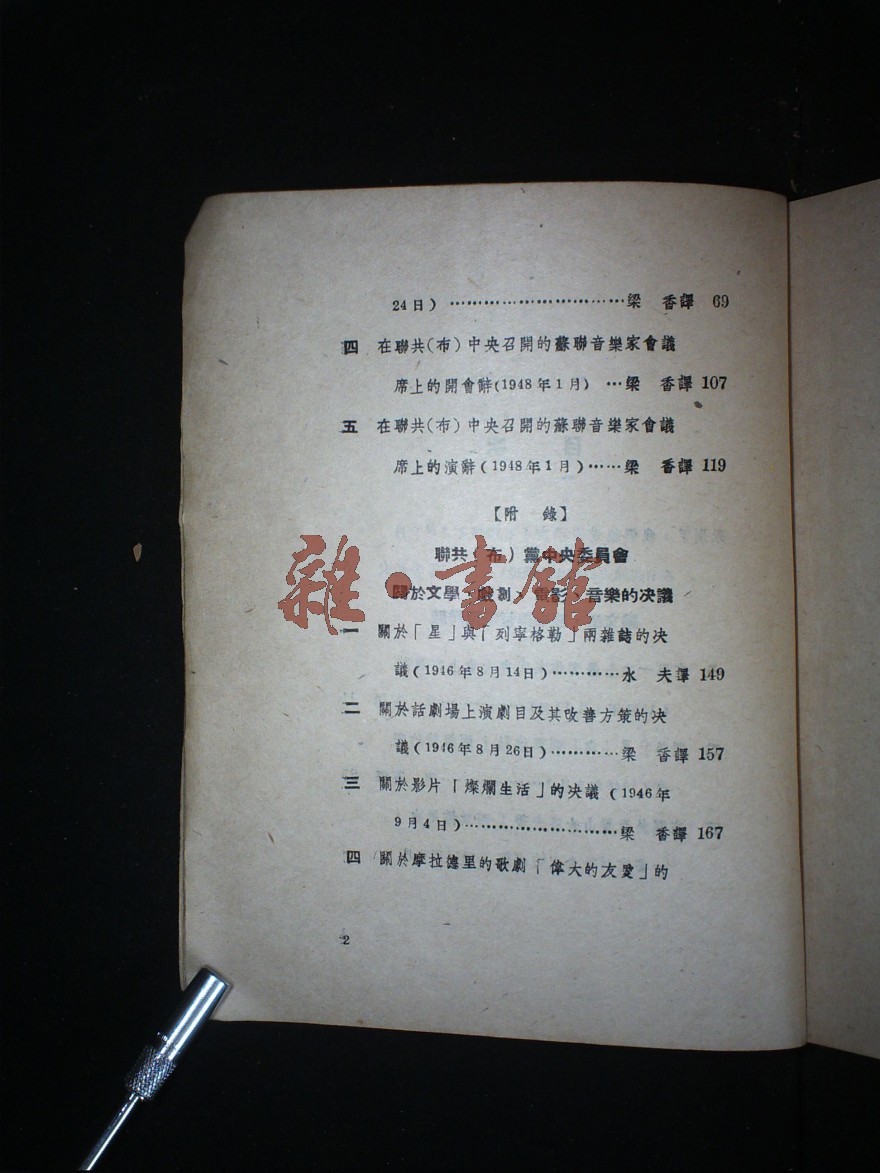 24日）…………………………梁　香譯　69
四　在聯共(布)中央召開的蘇聯音樂家會議
席上的開會辭(1948年1月)　…梁　香譯 107
五　在聯共(布)中央召開的蘇聯音樂家會議
席上的演辭(1948年1月)……梁　香譯 119
【附　錄】
聯共(布)黨中央委員會
關於文學、戲劇、電影、音樂的决議
一　關於「星」與「列寧格勒」兩雜誌的决
議(1946年8月14日)…………水　夫譯 149
二　關於話劇場上演劇目及其改善方策的决
議(1946年8月26日)…………梁　香譯 157
三　關於影片「燦爛生活」的决議（1946年
9月4日)………………………梁　香譯 167
四　關於摩拉德里的歌劇「偉大的友愛」的
2
雜·書館